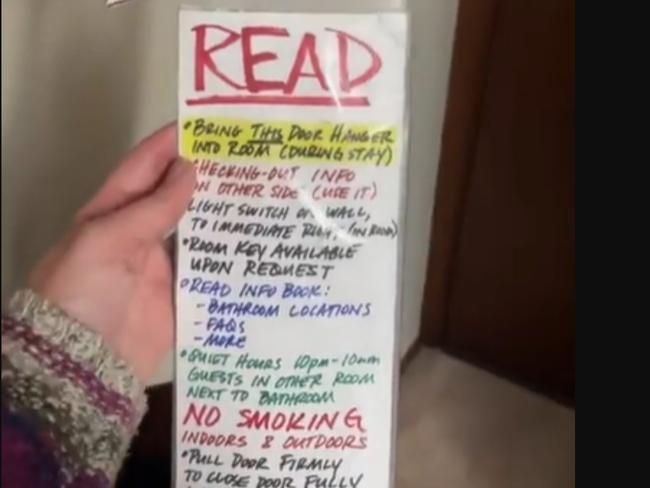 READ
• BRING THIS DOOR HANGER
INTO ROOM (DURING STAY)
CHECKING-OUT INFO
ON OTHER SIDE (USE IT)
LIGHT SWITCH ON WALL,
TO IMMEDIATE RIGHT (IN ROOM)
• ROOM KEY AVAILABLE
UPON REQUEST
• READ INFO BOOK:
- BATHROOM LOCATIONS
- FAQS
- MORE
• QUIET HOURS 10pm-10am
GUESTS IN OTHER ROOM
NEXT TO BATHROOM
NO SMOKING
INDOORS & OUTDOORS
• PULL DOOR FIRMLY
TO CLOSE DOOR FULLY